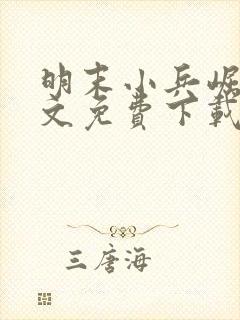 明末小兵崛
文免费下载
三唐海